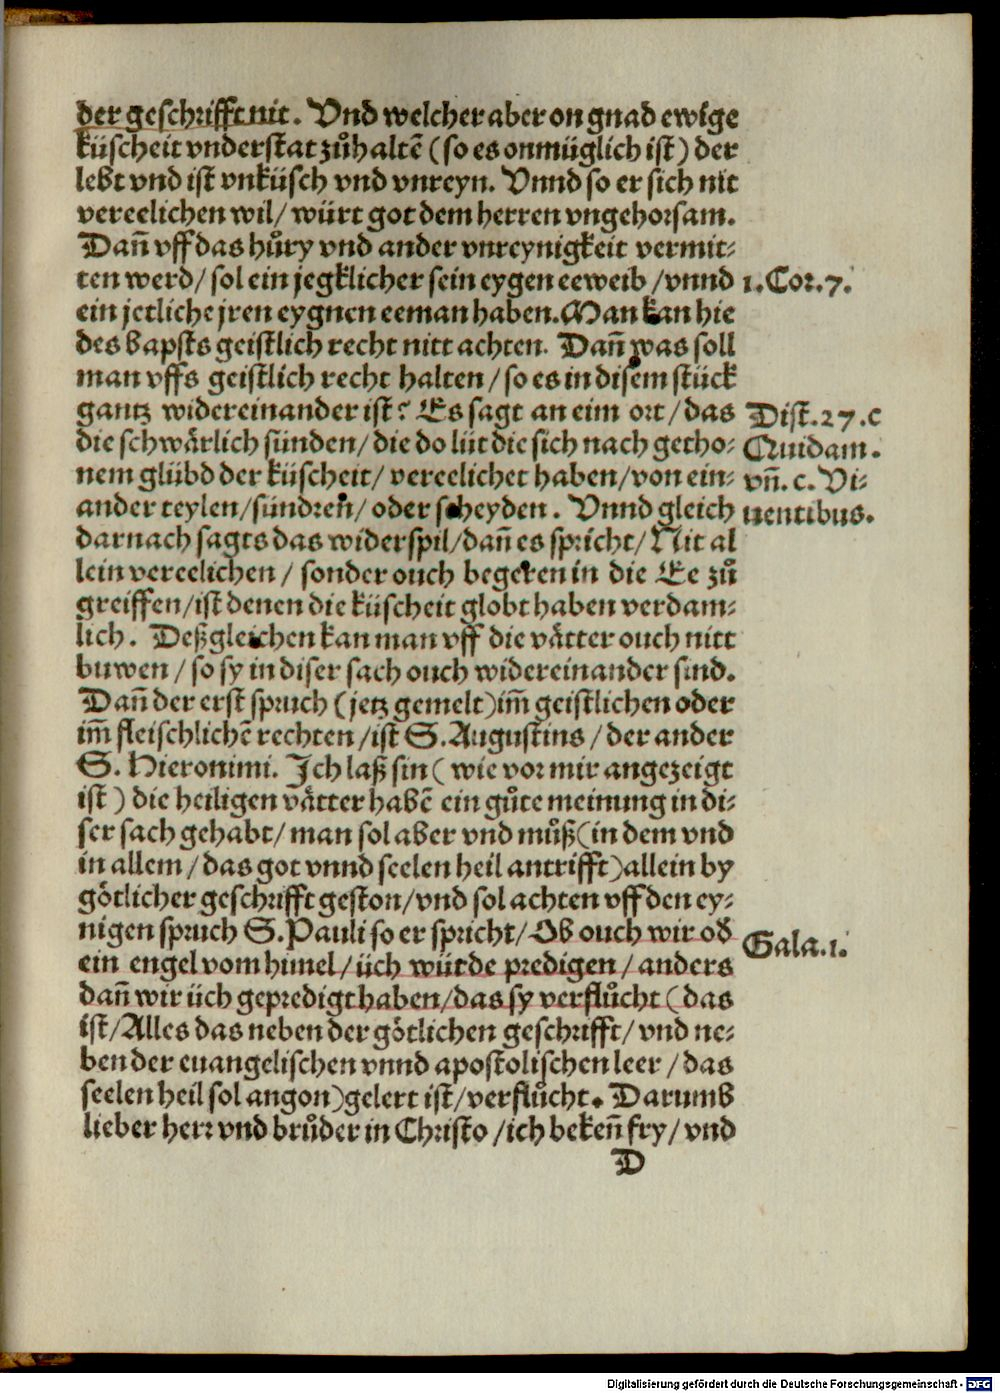 der geschrifft nit. Vnd welcher aber on gnad ewige
küscheit vnderstat zůhaltẽ (so es onmüglich ist) der
lebt vnd ist vnküsch vnd vnreyn. Vnnd so er sich nit
vereelichen wil/ würt got dem herren vngehorsam.
Dañ vff das hůry vnd ander vnreynigkeit vermit⸗
ten werd/ sol ein jegklicher sein eygen eeweib /vnnd
1. Cor. 7.
ein jetliche jren eygnen eeman haben. Man kan hie
des bapsts geistlich recht nitt achten. Dañ was soll
man vffs geistlich recht halten /so es in disem stück
gantz widereinander ist? Es sagt an eim ort/ das
Dist. 27. c
die schwårlich sünden/ die do lüt die sich nach getho⸗
Quidam.
nem glübd der küscheit/ vereelichet haben/von ein⸗
vñ. c. Vi⸗
ander teylen/sündreñ/ oder scheyden. Vnnd gleich
uentibus.
darnach sagts das widerspil/dañ es spricht/ Nit al
lein vereelichen / sonder ouch begeren in die Ee zů
greiffen/ist denen die küscheit globt haben verdam⸗
lich. Deßgleichen kan man vff die våtter ouch nitt
buwen / so sy in diser sach ouch widereinander sind.
Dañ der erst spruch (jetz gemelt) im̃ geistlichen oder
im̃ fleischlichẽ rechten /ist S. Augustins / der ander
S. Hieronimi. Ich laß sin ( wie vor mir angezeigt
ist ) die heiligen våtter habẽ ein gůte meinung in di⸗
ser sach gehabt/ man sol aber vnd můß (in dem vnd
in allem / das got vnnd seelen heil antrifft) allein by
götlicher geschrifft geston/vnd sol achten vff den ey⸗
nigen spruch S. Pauli so er spricht/ Ob ouch wir od
Gala. 1.
ein engel vom himel / üch würde predigen / anders
dañ wir üch gepredigt haben/das sy verflůcht (das
ist/Alles das neben der götlichen geschrifft/ vnd ne⸗
ben der euangelischen vnnd apostolischen leer / das
seelen heil sol angon) gelert ist/verflůcht. Darumb
lieber herr vnd brůder in Christo /ich bekeñ fry/ vnd
D
Digitalisierung gefördert durch die Deutsche Forschungsgemeinschaft - DFG